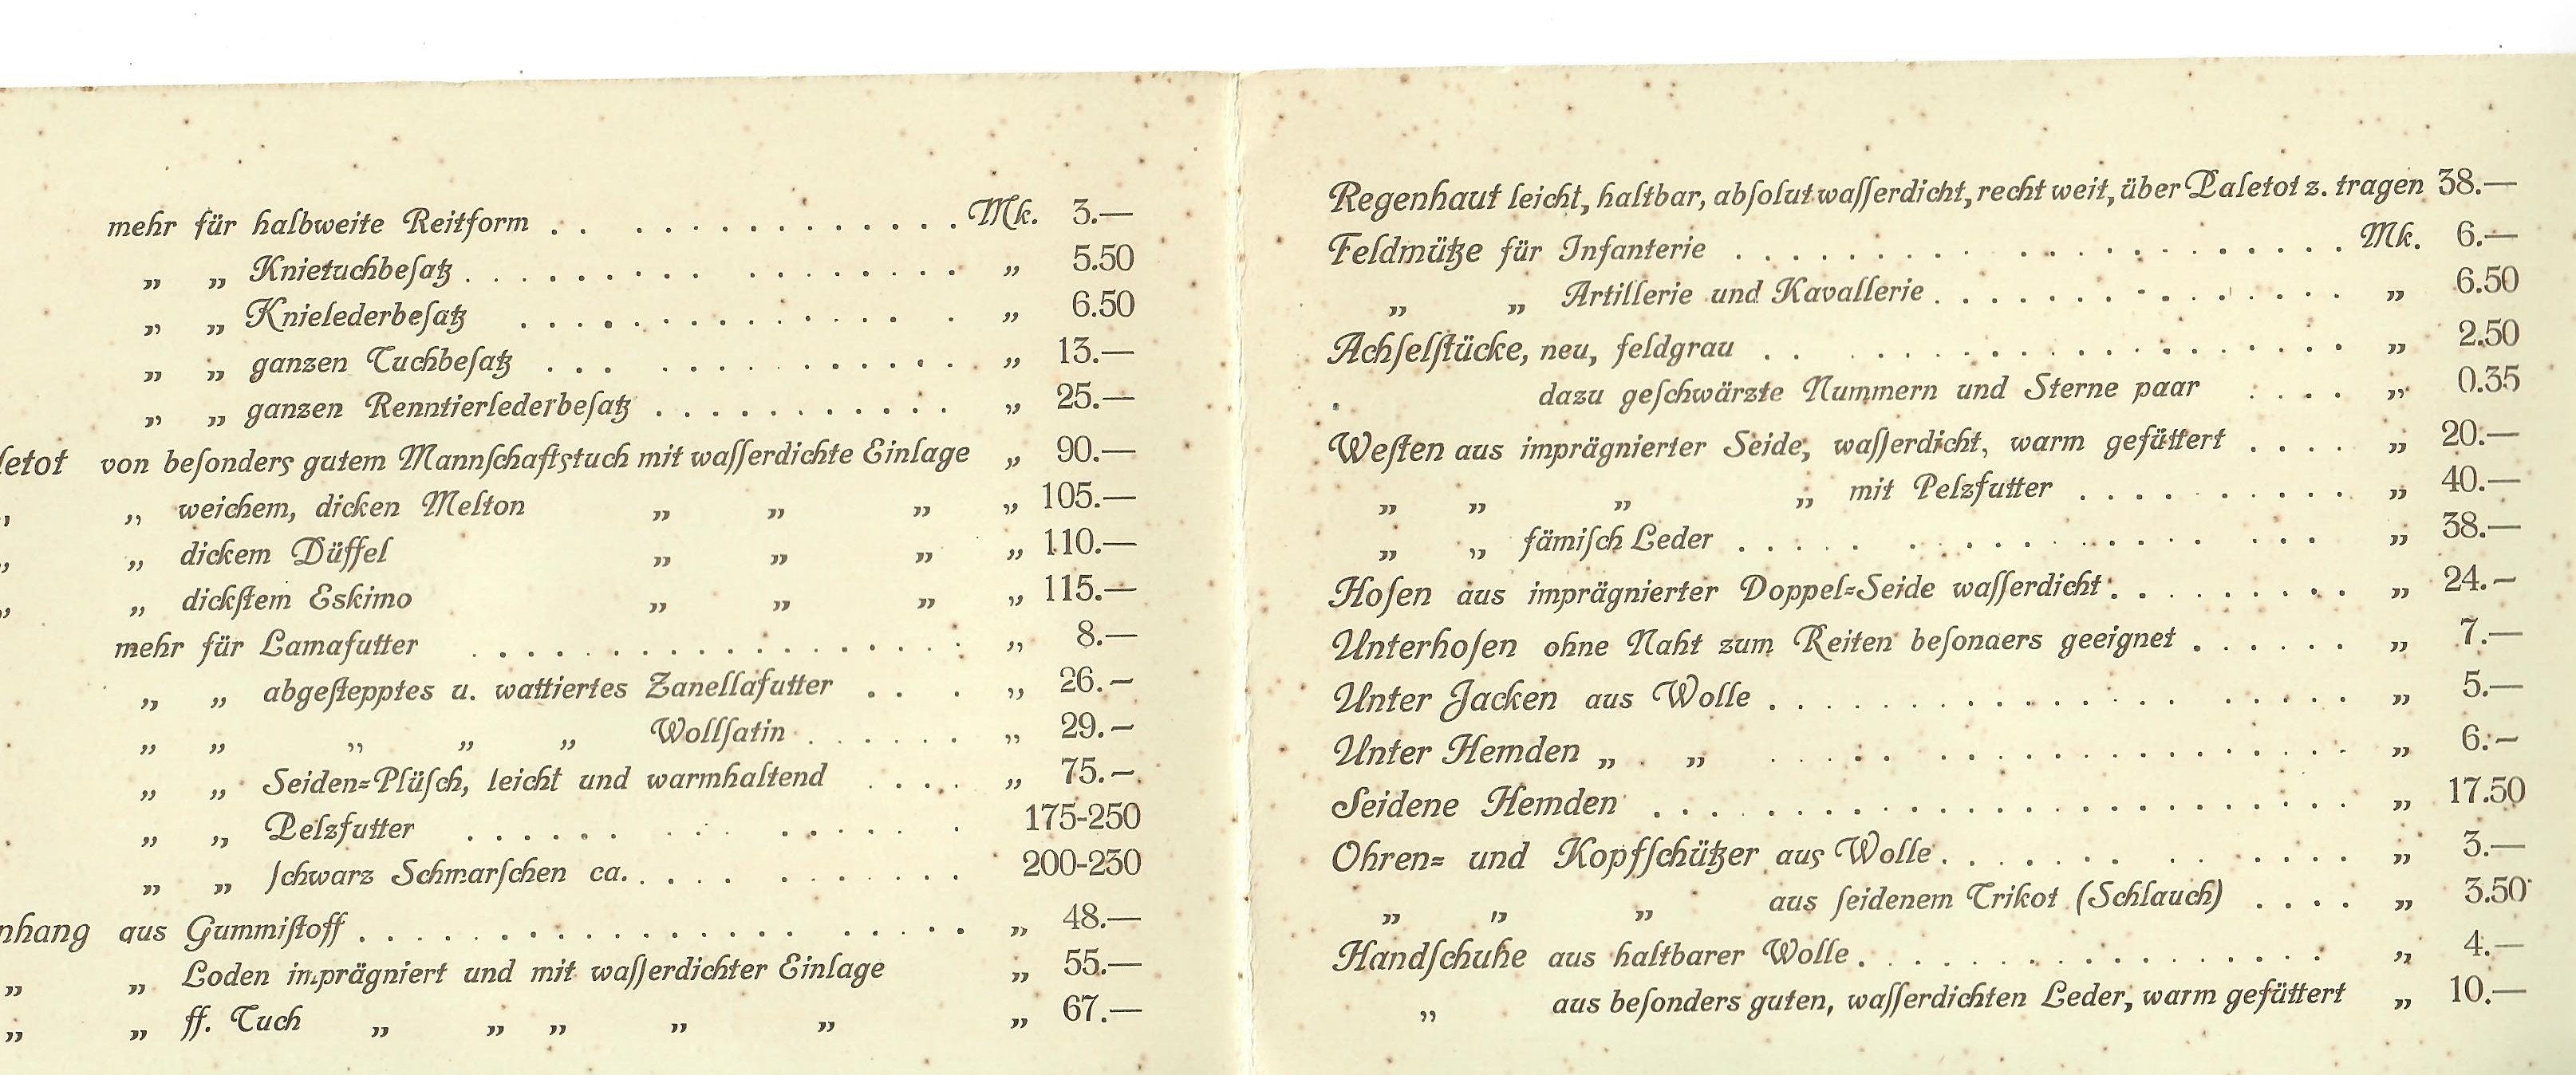 mehr für halbweite Reitform . . . . . . . . . . . . . . Mk. 3.—
„ „ Knietuchbeſatz . . . . . . . . . . . . . . . . „ 5.50
„ „ Knielederbeſatz . . . . . . . . . . . . . . . „ 6.50
„ „ ganzen Tuchbeſatz . . . . . . . . . . . . . „ 13.—
„ „ ganzen Renntierlederbeſatz . . . . . . . . . . . „ 25.—
letot von beſonders gutem Mannſchaftstuch mit waſſerdichte Einlage „ 90.—
„ „ weichem, dicken Melton „ „ „ „ 105.—
„ „ dickem Düffel „ „ „ „ 110.—
„ „ dickſtem Eskimo „ „ „ „ 115.—
mehr für Lamafutter . . . . . . . . . . . . . . . . . „ 8.—
„ „ abgeſtepptes u. wattiertes Zanellafutter . . . „ 26.—
„ „ „ „ „ Wollſatin . . . . . . „ 29.—
„ „ Seiden=Plüſch, leicht und warmhaltend . . . . „ 75.—
„ „ Pelzfutter . . . . . . . . . . . . . . . 175-250
„ „ ſchwarz Schmarſchen ca. . . . . . . . . . . 200-230
nhang aus Gummiſtoff . . . . . . . . . . . . . . . . . . . . „ 48.—
„ „ Loden imprägniert und mit waſſerdichter Einlage „ 55.—
„ „ ff. Tuch „ „ „ „ „ „ 67.—
Regenhaut leicht, haltbar, abſolut waſſerdicht, recht weit, über Paletot z. tragen 38.—
Feldmütze für Infanterie . . . . . . . . . . . . . . . . . . . . Mk. 6.—
„ „ Artillerie und Kavallerie . . . . . . . . . . . . . . . „ 6.50
Achſelſtücke, neu, feldgrau . . . . . . . . . . . . . . . . . . . „ 2.50
dazu geſchwärzte Nummern und Sterne paar . . . . „ 0.35
Weſten aus imprägnierter Seide, waſſerdicht, warm gefüttert . . . . „ 20.—
„ „ „ „ mit Pelzfutter . . . . . . . . . . „ 40.—
„ „ ſämiſch Leder . . . . . . . . . . . . . . . . . . „ 38.—
Hoſen aus imprägnierter Doppel=Seide waſſerdicht . . . . . . . . . „ 24.—
Unterhoſen ohne Naht zum Reiten beſonders geeignet . . . . . . „ 7.—
Unter Jacken aus Wolle . . . . . . . . . . . . . . . . . . . „ 5.—
Unter Hemden „ „ . . . . . . . . . . . . . . . . . . „ 6.—
Seidene Hemden . . . . . . . . . . . . . . . . . . . . . . . . „ 17.50
Ohren= und Kopfſchützer aus Wolle . . . . . . . . . . . . . „ 3.—
„ „ „ aus ſeidenem Trikot (Schlauch) . . . . „ 3.50
Handſchuhe aus haltbarer Wolle . . . . . . . . . . . . . . . . „ 4.—
„ aus beſonders guten, waſſerdichten Leder, warm gefüttert „ 10.—